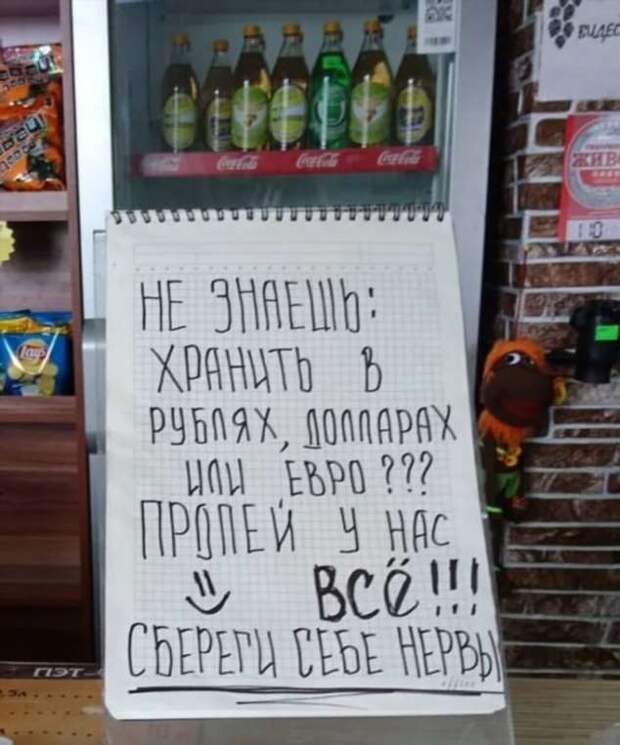 ВИДЕО
Coca-Cola Coca-Cola Coca-Cola
ЖИВО
Lay's
НЕ ЗНАЕШЬ:
ХРАНИТЬ В
РУБЛЯХ, ДОЛЛАРАХ
ИЛИ ЕВРО ???
ПРОПЕЙ У НАС
ВСЁ!!!
СБЕРЕГИ СЕБЕ НЕРВЫ
ПЭТ